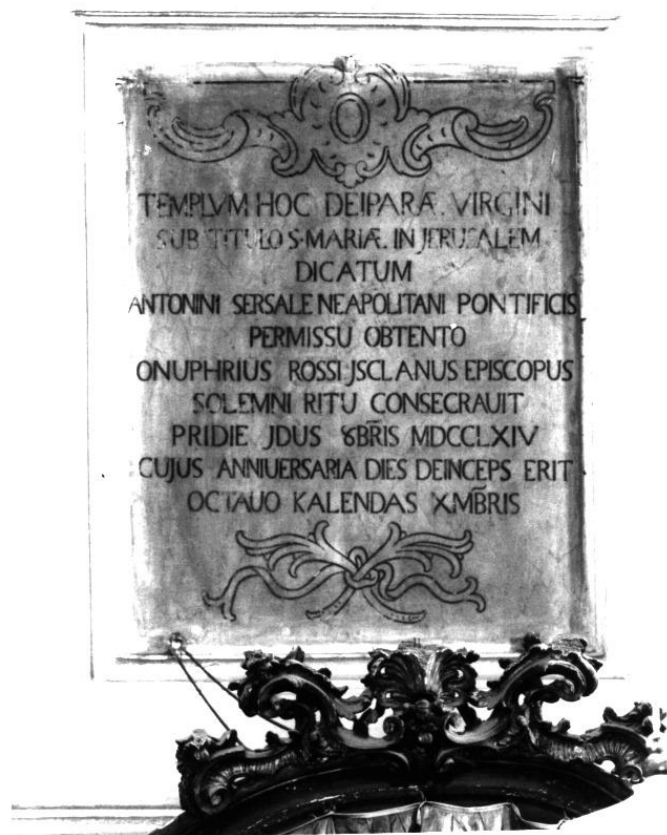 TEMPLVM HOC DEIPARÆ. VIRGINI
SUB TITULO S·MARIÆ. IN JERUSALEM
DICATUM
ANTONINI SERSALE NEAPOLITANI PONTIFICIS
PERMISSU OBTENTO
ONUPHRIUS ROSSI JSCLANUS EPISCOPUS
SOLEMNI RITU CONSECRAUIT
PRIDIE JDUS 8BR̄IS MDCCLXIV
CUJUS ANNIUERSARIA DIES DEINCEPS ERIT
OCTAUO KALENDAS XMB̄RIS